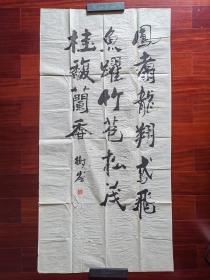 鳳翥龍翔式飛
魚躍竹苞松茂
桂馥蘭香